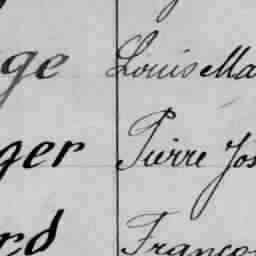 ge Louis Ma
ger Pierre Jos
rd Franço